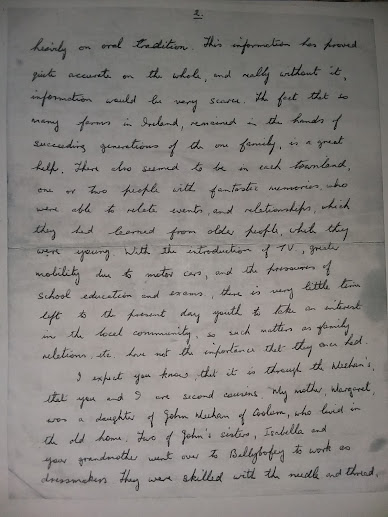 2.
heavily on oral tradition. This information has proved
quite accurate on the whole, and really without it,
information would be very scarce. The fact that so
many farms in Ireland, remained in the hands of
succeeding generations of the one family, is a great
help. There also seemed to be in each townland,
one or two people with fantastic memories, who
were able to relate events, and relationships, which
they had learned from older people, while they
were young. With the introduction of TV, greater
mobility due to motor cars, and the pressures of
school education and exams, there is very little time
left to the present day youth to take an interest
in the local community, so such matters as family
relations, etc. have not the importance that they once had.
I expect you know that it is through the Meehan's,
that you and I are second cousins. My mother, Margaret,
was a daughter of John Meehan of Coolam, who lived in
the old home. Two of John's sisters, Isabella and
your grandmother went over to Ballybofey to work as
dressmakers. They were skilled with the needle and thread,